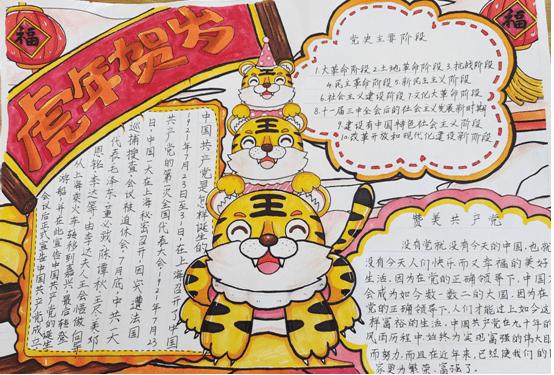 福
虎年贺岁
福
党史主要阶段
1.大革命阶段2.土地革命阶段3.抗战阶段
4.民主革命阶段5.新民主主义阶段
6.社会主义建设阶段7.文化大革命阶段
8.十一届三中全会后的社会主义发展新时期
9.建设有中国特色社会主义阶段
10.改革开放和现代化建设新阶段
中国共产党是怎样诞生的
1921年7月23日至31日,在上海召开了中国
共产党的第一次全国代表大会。1921年7月23
日,中国一大在上海秘密召开,因突遭法国
巡捕搜查,会议被迫休会。7月底,中共一大
代表毛泽东、董必武、陈潭秋、王尽美、邓
恩铭、李达等,由李达夫人王会悟做向导
从上海乘火车转移到嘉兴,最后租登
游船,并在此宣告中国共产党的诞生
会后正式宣告中国共产党成立
王
王
王
赞美共产党
没有党就没有今天的中国,也就
没有今天人们快乐而又幸福的美好
生活。因为在党的正确领导下,中国才
会成为如今数一数二的大国。因为在
党的正确领导下,人们才能过上如今这
样富裕的生活。中国共产党在九十年的
风雨历程中,始终为实现富强的伟大目
而努力。而且在近年来,已经使我们的
家更为繁荣,富强了。